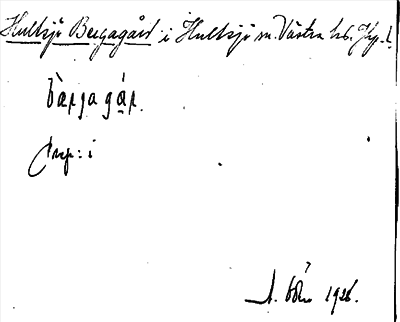 Hultsjö Bergagård i Hultsjö sn. Västra hd. Jkp. l.
bàrjagár.
prep: i
1926.